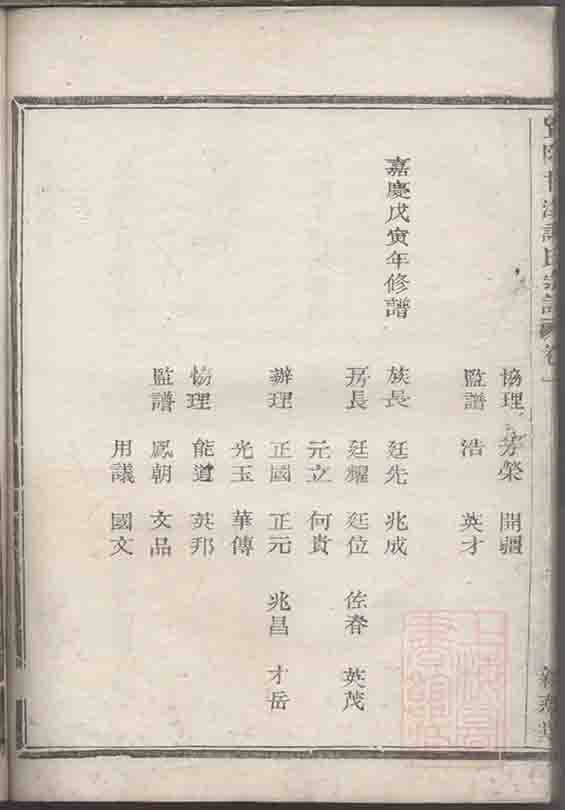 協理 芳榮 開疆
監譜 浩 英才
嘉慶戊寅年修譜
族長 廷先 兆成
房長 廷耀 廷位 佐春 英茂
元立 何貴
辦理 正國 正元 兆昌 才岳
光玉 華傳
協理 能道 英邦
監譜 鳳朝 文品
用議 國文